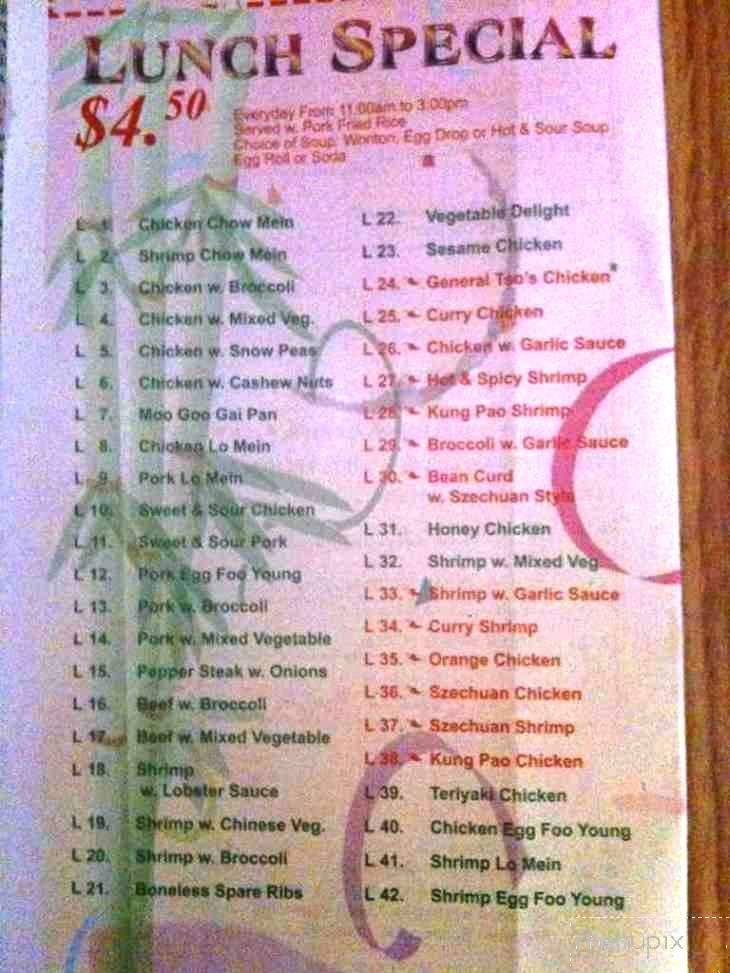 LUNCH SPECIAL
$4.50
Everyday From 11:00am to 3:00pm
Served w. Pork Fried Rice
Choice of Soup, Wonton, Egg Drop or Hot & Sour Soup
Egg Roll or Soda
L 1. Chicken Chow Mein
L 2. Shrimp Chow Mein
L 3. Chicken w. Broccoli
L 4. Chicken w. Mixed Veg.
L 5. Chicken w. Snow Peas
L 6. Chicken w. Cashew Nuts
L 7. Moo Goo Gai Pan
L 8. Chicken Lo Mein
L 9. Pork Lo Mein
L 10. Sweet & Sour Chicken
L 11. Sweet & Sour Pork
L 12. Pork Egg Foo Young
L 13. Pork w. Broccoli
L 14. Pork w. Mixed Vegetable
L 15. Pepper Steak w. Onions
L 16. Beef w. Broccoli
L 17. Beef w. Mixed Vegetable
L 18. Shrimp
w. Lobster Sauce
L 19. Shrimp w. Chinese Veg.
L 20. Shrimp w. Broccoli
L 21. Boneless Spare Ribs
L 22. Vegetable Delight
L 23. Sesame Chicken
L 24. General Tso's Chicken
L 25. Curry Chicken
L 26. Chicken w. Garlic Sauce
L 27. Hot & Spicy Shrimp
L 28. Kung Pao Shrimp
L 29. Broccoli w. Garlic Sauce
L 30. Bean Curd
w. Szechuan Style
L 31. Honey Chicken
L 32. Shrimp w. Mixed Veg.
L 33. Shrimp w. Garlic Sauce
L 34. Curry Shrimp
L 35. Orange Chicken
L 36. Szechuan Chicken
L 37. Szechuan Shrimp
L 38. Kung Pao Chicken
L 39. Teriyaki Chicken
L 40. Chicken Egg Foo Young
L 41. Shrimp Lo Mein
L 42. Shrimp Egg Foo Young